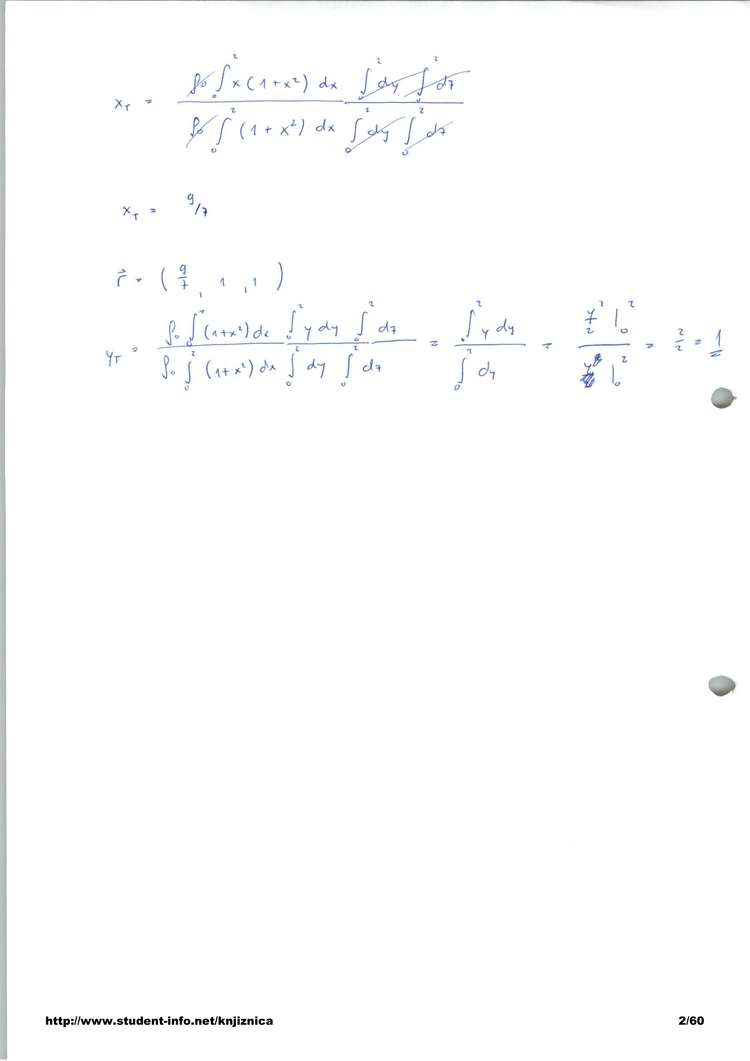 x_T = ρ₀ ∫₀² x (1+x²) dx ∫₀² dy ∫₀² dz / ρ₀ ∫₀² (1+x²) dx ∫₀² dy ∫₀² dz
x_T = 9/7
r⃗ = (9/7, 1, 1)
y_T = ρ₀ ∫₀² (1+x²) dx ∫₀² y dy ∫₀² dz / ρ₀ ∫₀² (1+x²) dx ∫₀² dy ∫₀² dz = ∫₀² y dy / ∫₀² dy = y²/2 |₀² / y |₀² = 2/2 = 1
http://www.student-info.net/knjiznica 2/60